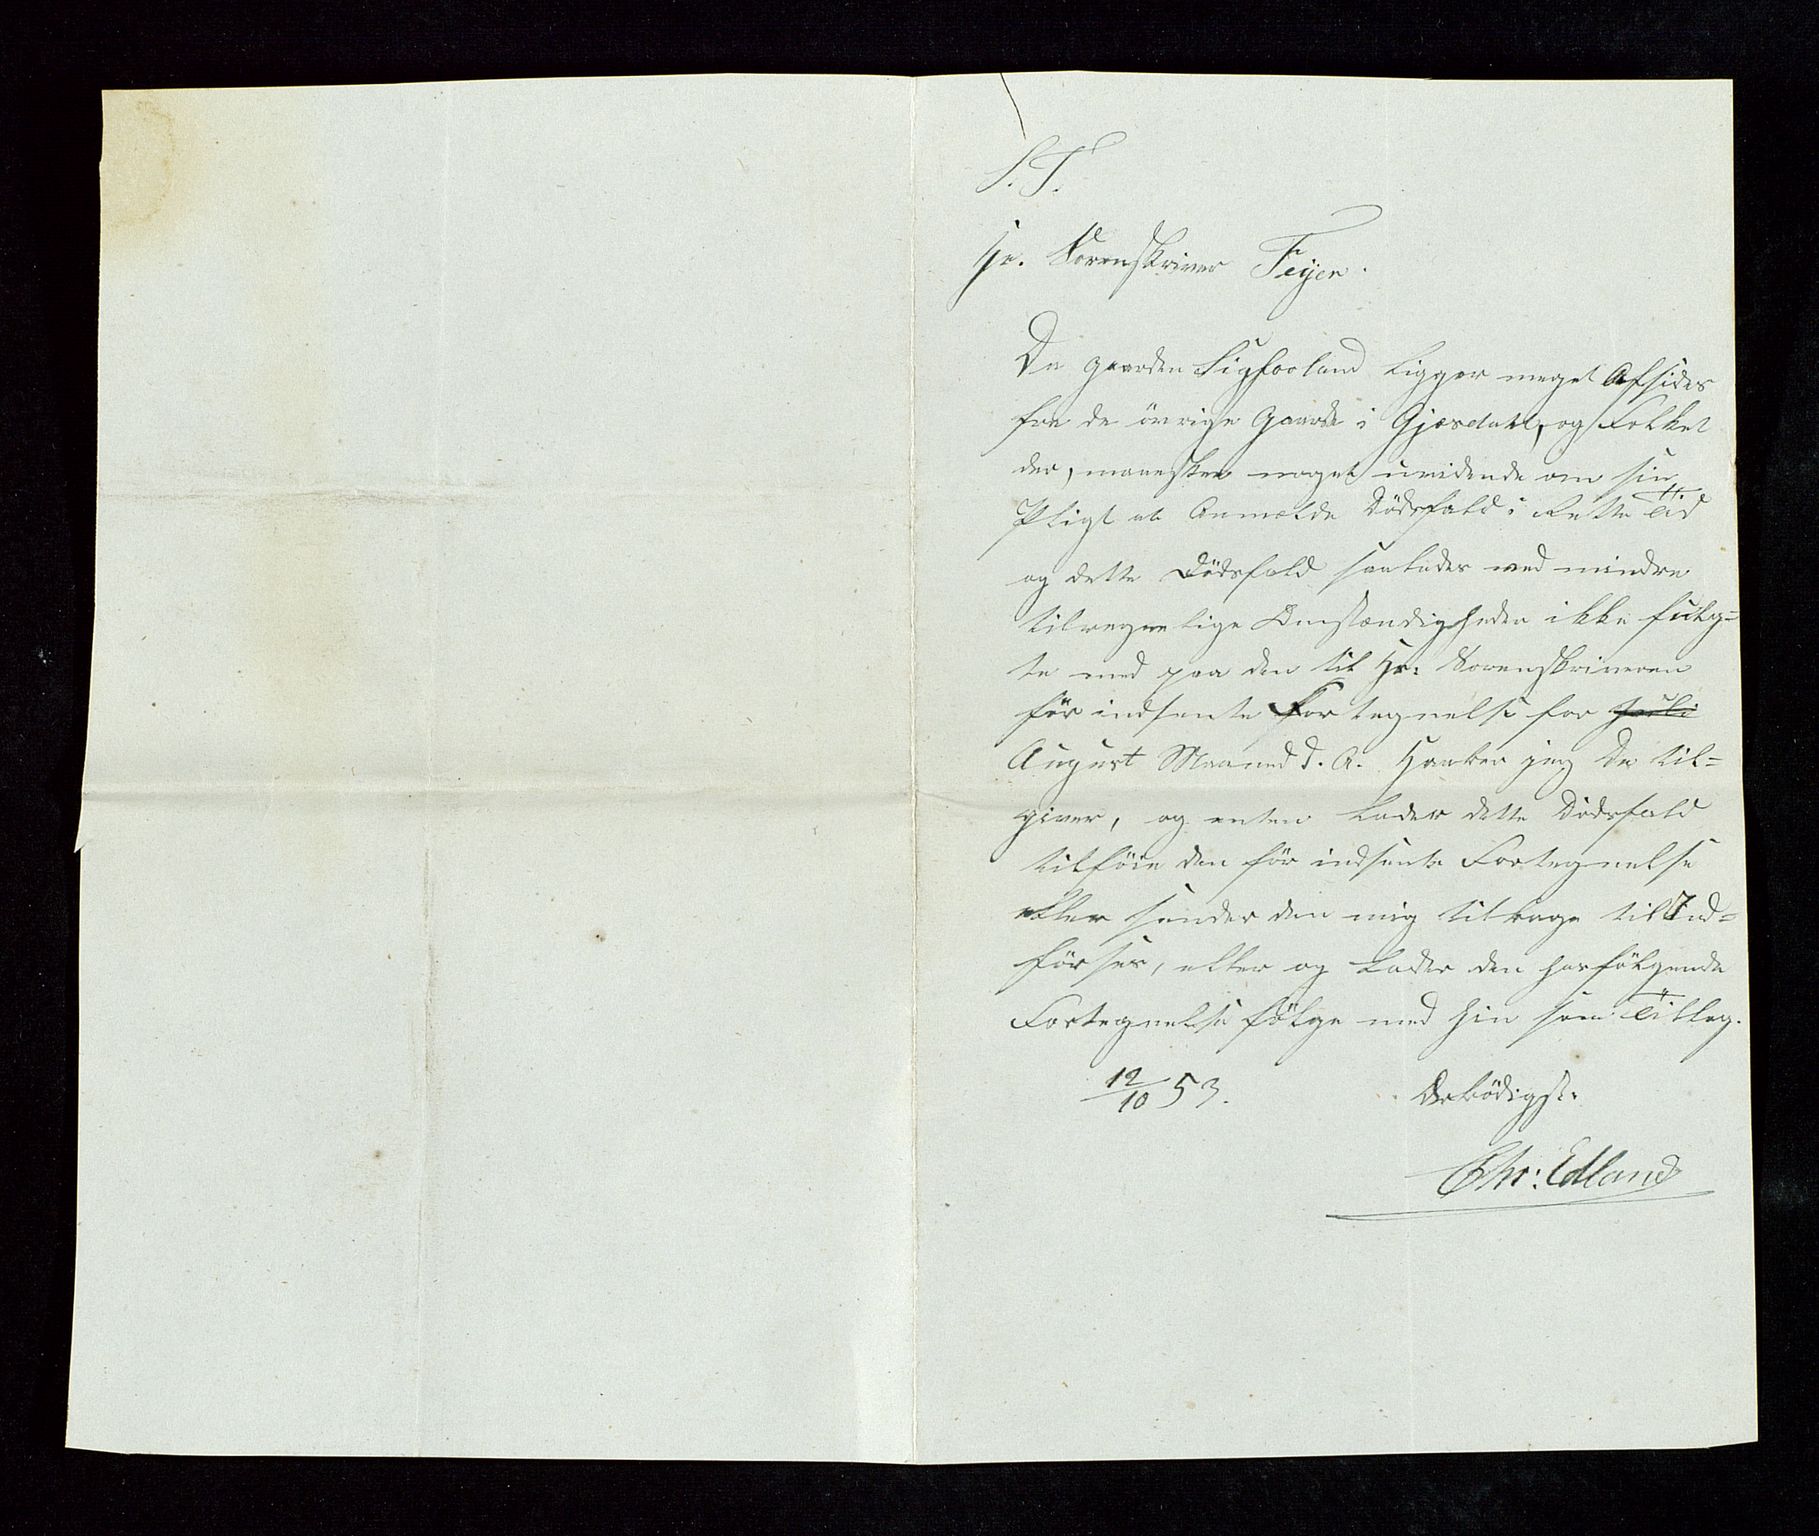 S. T.
Hr. Sorenskriver Feyer.
Da gaarden Sigfosland ligger meget Afsides
fra de övrige Gaarde i Gjæsdahl, og Folket
der, maaeskee noget uvidende om sin
Pligt at Anmelde Dödsfald i Rette Tid
og dette Dödsfald saaledes ved mindre
tilregnelige Omstændigheder ikke fulg-
te med paa den til Hr. Sorenskriveren
för indsente Fortegnelse for Juli
August Maaned d. A. Haaber jeg De til-
giver, og enten lader dette Dödsfald
tilföie den för indsente Fortegnelse
eller sender den mig tilbage til Ind-
förser, eller og lader den herfölgende
Fortegnelse fölge med hin som Tillæg.
12/10 53. Ærbödigst.
Chr: Edland